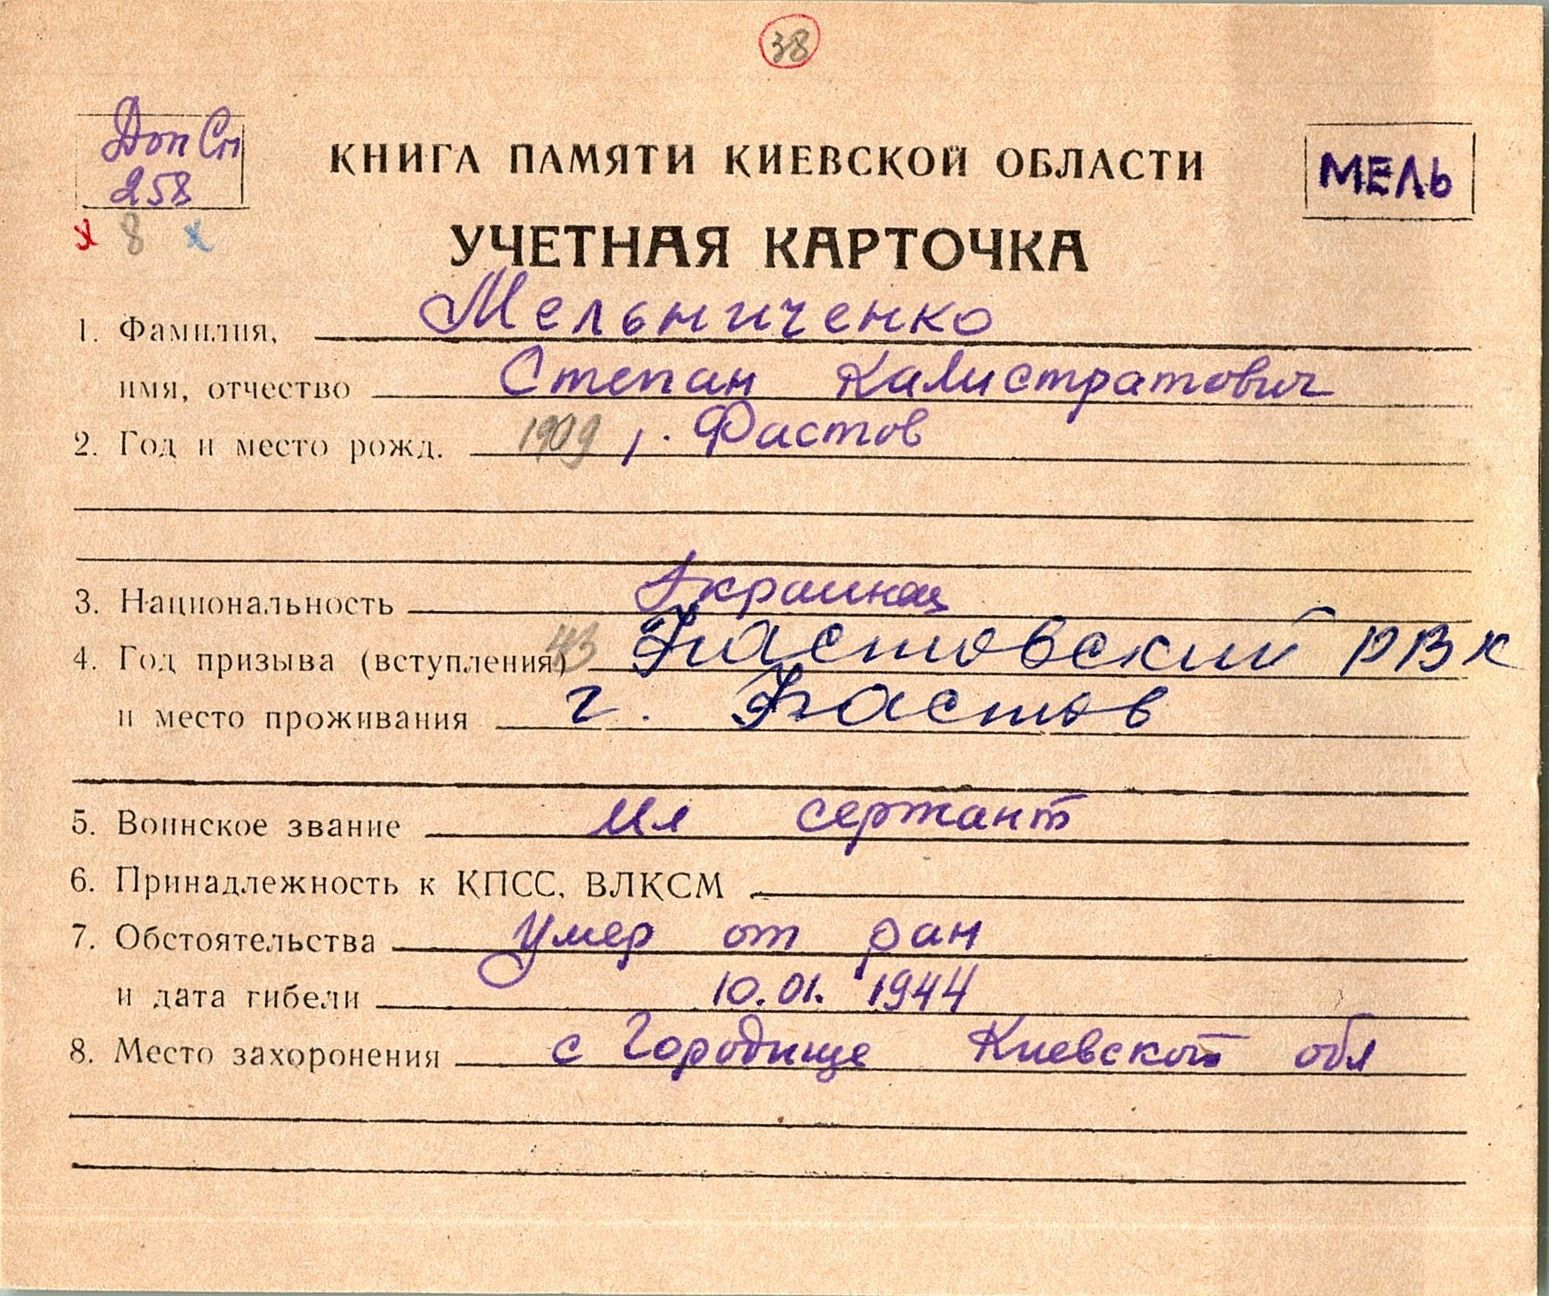 38
Доп Сп
258
8
КНИГА ПАМЯТИ КИЕВСКОЙ ОБЛАСТИ
МЕЛЬ
УЧЕТНАЯ КАРТОЧКА
1. Фамилия, Мельниченко
имя, отчество Степан Калистратович
2. Год и место рожд. 1909 г. Фастов
3. Национальность Украинец
4. Год призыва (вступления) 43 Фастовский РВК
и место проживания г. Фастов
5. Воинское звание Мл сержант
6. Принадлежность к КПСС, ВЛКСМ
7. Обстоятельства Умер от ран
и дата гибели 10.01. 1944
8. Место захоронения с Городище Киевской обл